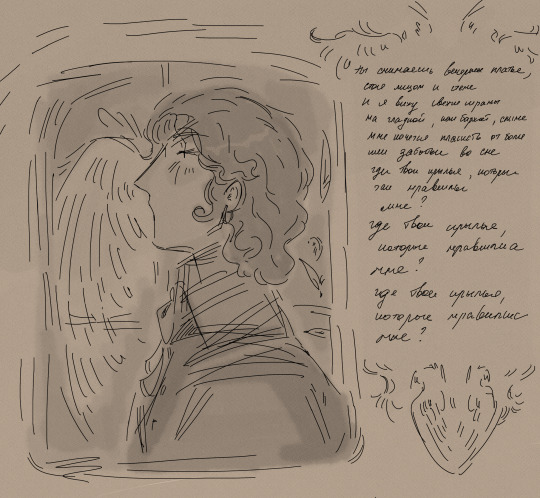 ты снимаешь вечернее платье,
стоя лицом к стене
и я вижу свежие шрамы
на гладкой, как бархат, спине
мне хочется плакать от боли
или забыться во сне
где твои крылья, которые
так нравились
мне?
где твои крылья,
которые нравились
мне?
где твои крылья,
которые нравились
мне?